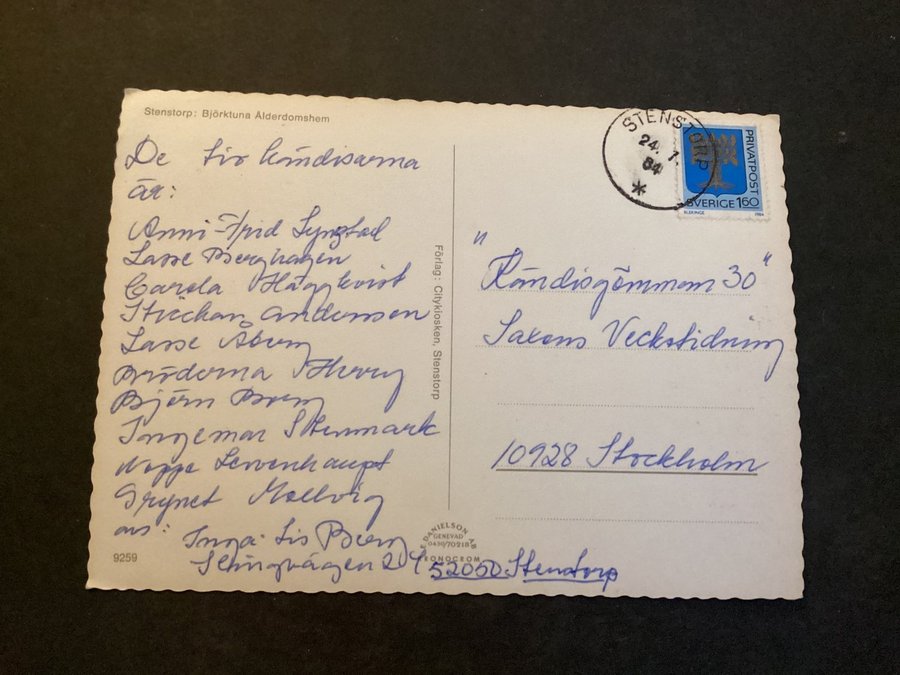 Stenstorp: Björktuna Ålderdomshem
De tio kändisarna
är:
Anni-Frid Lyngstad
Lasse Berghagen
Carola Häggkvist
Stickan Anderson
Lasse Åberg
Bröderna Herrey
Björn Borg
Ingemar Stenmark
Noppe Lewenhaupt
Grynet Mollvig
Inga-Lis Berg
52050 Stenstorp
9259
Förlag: Citykiosken, Stenstorp
DANIELSON AB
GENEVAD
0430/70218
KRONOCROM
STENSTORP
24.7.
84
PRIVATPOST
SVERIGE 160
BLEKINGE 1984
"Kändisgömman 30"
Saxons Veckotidning
10928 Stockholm